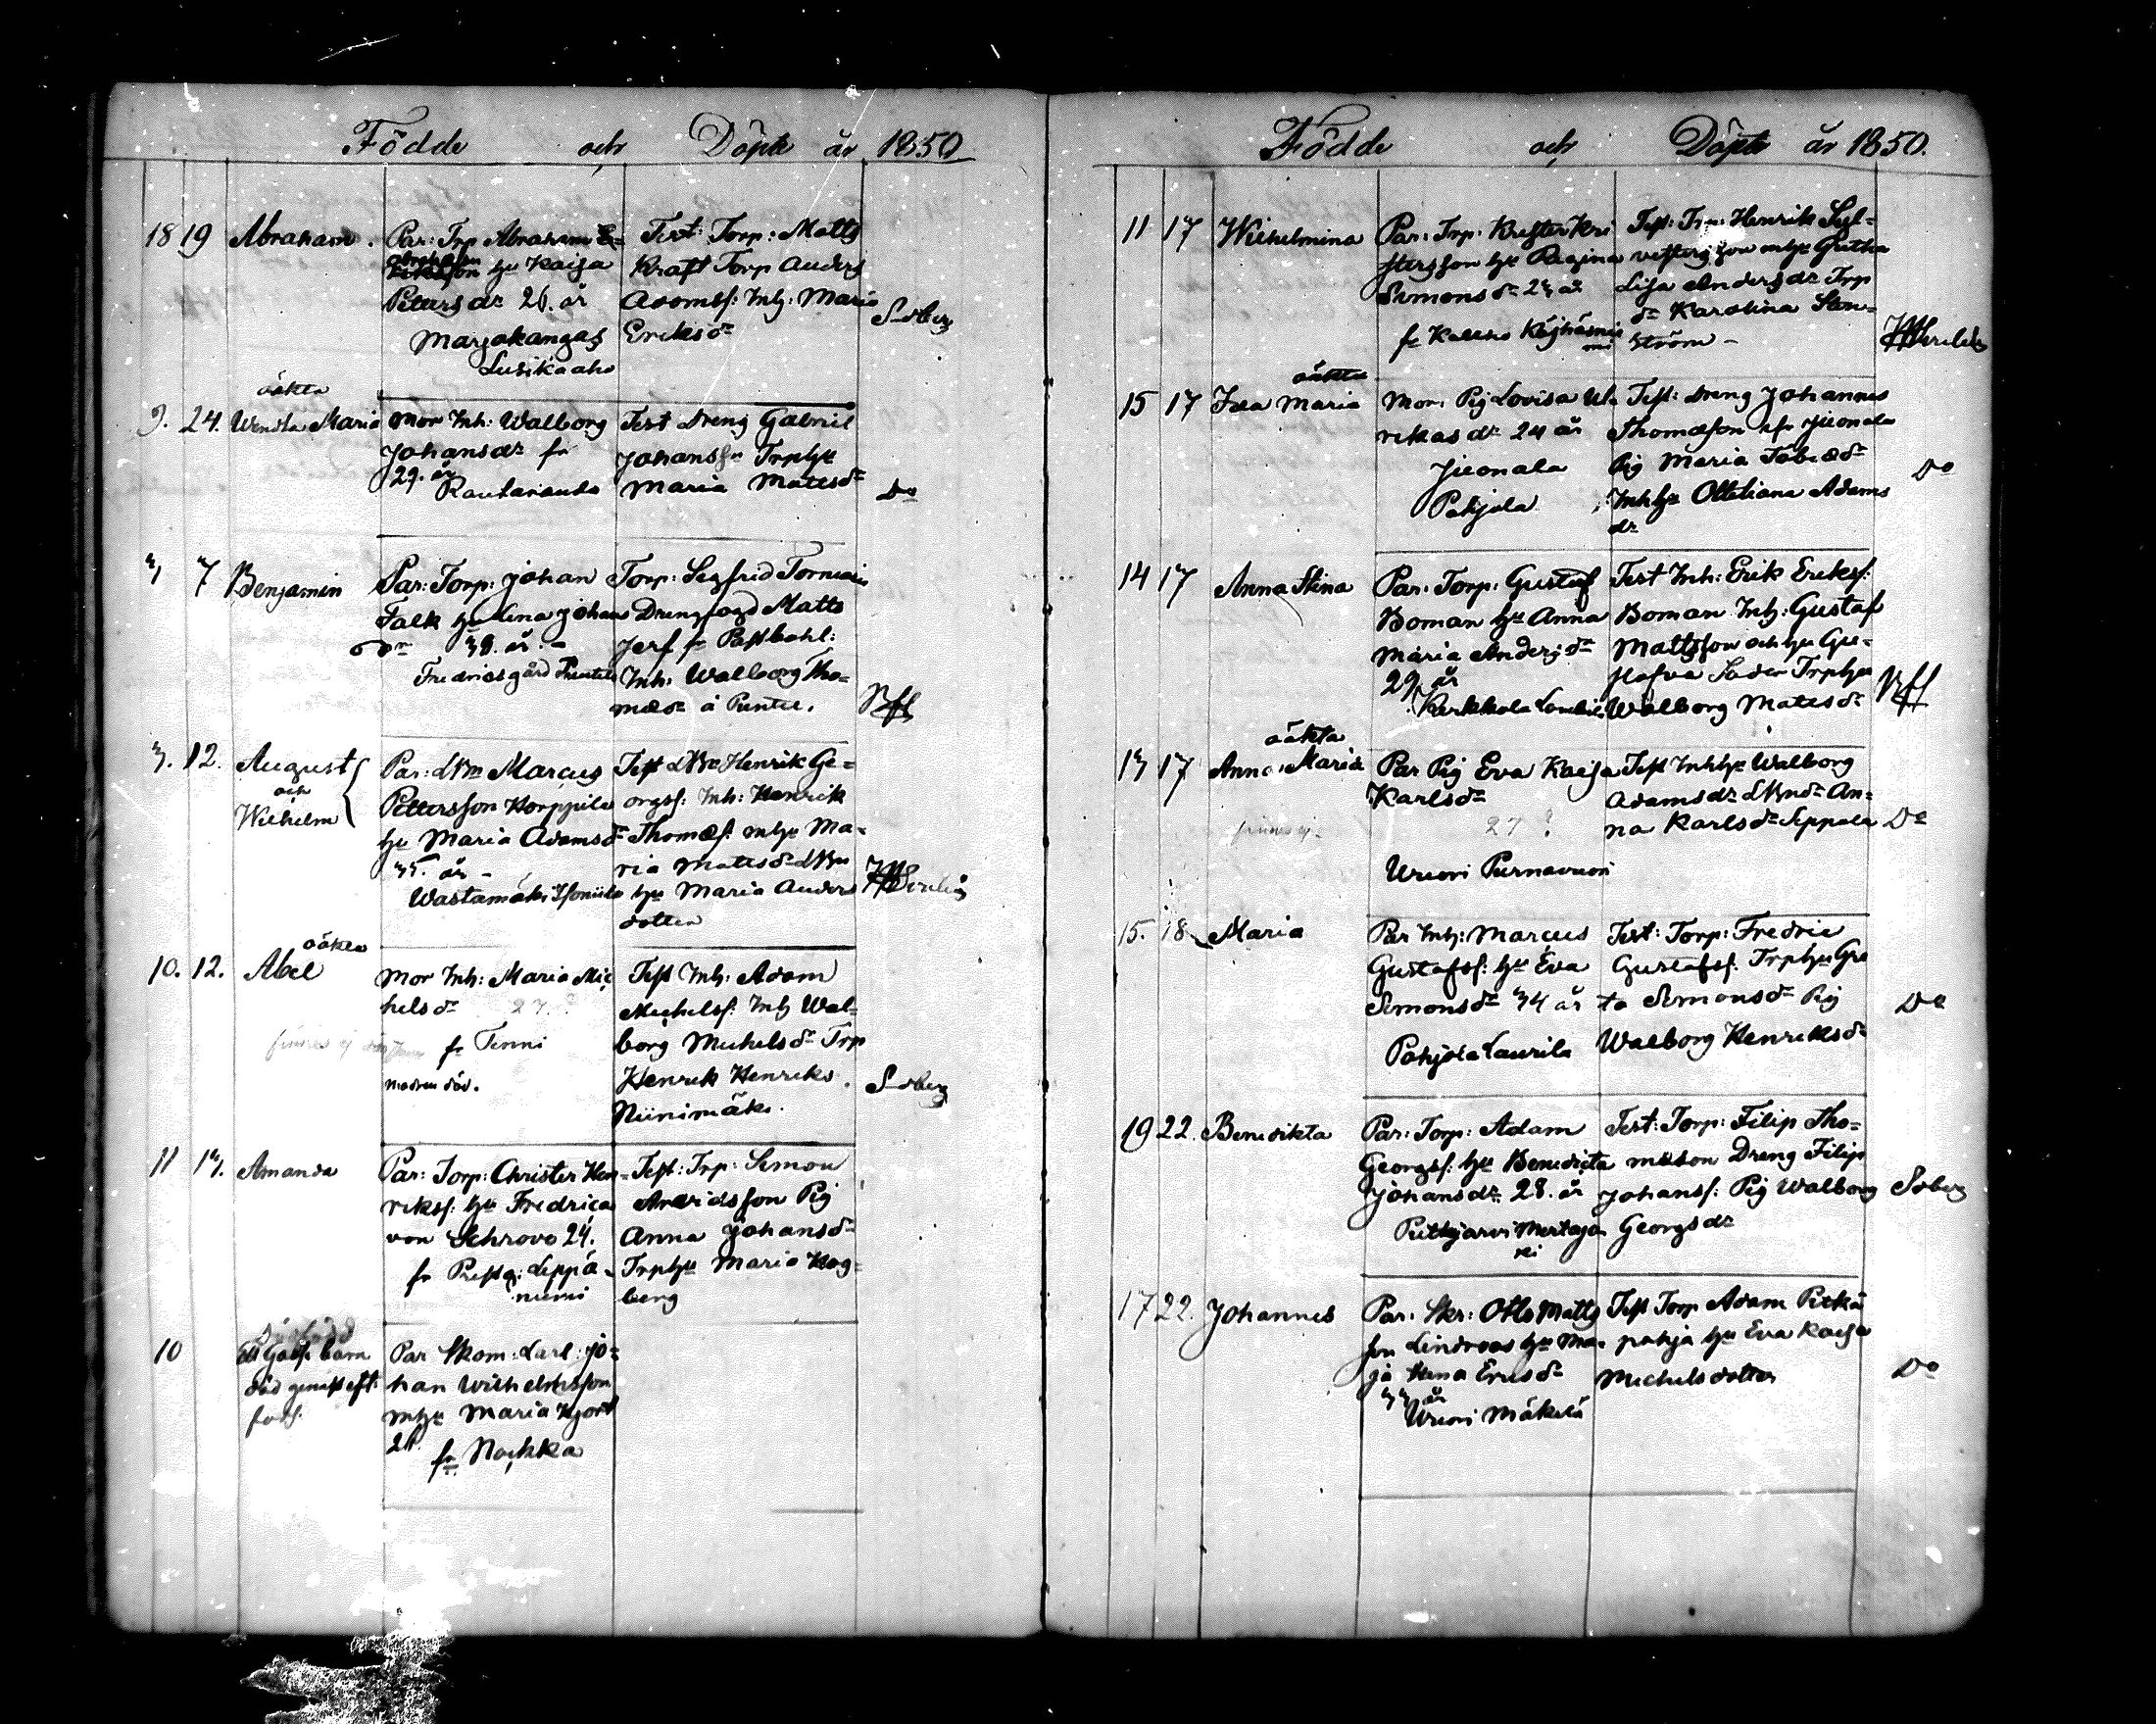 Födde och Döpte år 1850
18 19 Abraham. Par: Trp Abraham
Abrahamson hu Kaisa
Petersdr 26. år
Marjakangas
Lusikaaho
Test: Torp: Matts
Kraft Torp Anders
Adamss: Inh: Maria
Eriksdr
Sodberg
oäkta
9. 24. Wendla Maria Mor Inh: Walborg
Johansdr fr
29. år
Rautaranda
Test Dreng Gabriel
Johanss Trphu
Maria Matesdr
Do
3 7 Benjamin Par: Torp: Johan
Falk hu Lina Johans
dr 39. år. -
Fredricsgård
Torp: Segfrid Torniain
Drengfogd Matts
Jerf fr Pastbohl:
Inh: Walborg Tho=
mædr å Puntu.
3. 12. August
och
Wilhelm
Par: Marcus
Pettersson Korppila
hu Maria Adamsdr
35. år -
Wastamäki Isoniile
Test Henrik Ge=
orgss: Inh: Henrik
Thomæs: mhu Ma=
ria Matesdr
hu Maria Anders
dotter
oäkta
10. 12. Abel Mor Inh: Maria Mic
helsdr 27. ?
finnes ej
fr Tenni
modren död.
Test Inh: Adam
Michelss: Inh Wal=
borg Michelsdr Trp
Henrik Henriks.
Niinimäki.
Sodberg
11 13. Amanda Par: Torp: Christer Hen=
rikss: hu Fredrica
von Schrove 24.
fr Prestg: Leppä=
niemi
Test: Trp: Simon
Arvidsson Pig
Anna Johansdr
Trphu Maria Hag=
berg
10 Dödfödd
Ett Gosse barn
död genast eft:
föds.
Par Skom: Carl: Jo=
han Wilhelmsson
mhu Maria Hjort
26.
fr Nochka
Födde och Döpte år 1850.
11 17 Wilhelmina Par: Trp: Krister Kri
stersson hu Regina
Simonsdr 23 år
fr Kallens
Test: Trp: Henrik Syl=
vestersson mhu Gretha
Lisa Andersdr Trp
dr Karolina Sten=
ström -
oäkta
15 17 Ida Maria Mor: Pig Lovisa Ul
rikasdr 24 år
Jiionala
Pohjola
Test: Dreng Johannes
Thomæson fr Jiionala
Pig Maria Tobiædr
Inhhu Ottiliana Adams
dr
Do
14 17 Anna Stina Par: Torp: Gustaf
Boman hu Anna
Maria Andersdr
29. år
Test Inh: Erik Eriks:
Boman Inh: Gustaf
Mattsson och hu Gu=
stafva Trphu
Walborg Matesdr
oäkta
13 17 Anna Maria Par Pig Eva Kaisa
Karlsdr
27 ?
finnes ej.
Wuori Purnavuori
Test Inhhu Walborg
Adamsdr An=
na Karlsdr Seppala
Do
15. 18 Maria Par Inh: Marcus
Gustafss: hu Eva
Simonsdr 34 år
Pohjola Laurila
Test: Torp: Fredric
Gustafss: Trphu Gre
ta Simonsdr Pig
Walborg Henriksdr
Do
19 22. Benedikta Par: Torp: Adam
Georgss: hu Benedicta
Johansdr 28. år
Test: Torp: Filip Tho=
mæson Dreng Filip
Johanss: Pig Walborg
Georgsdr
Soberg
17 22. Johannes Par: Skr: Otto Matts
son Lindroos hu Ma
ja Stina Ericsdr
33 år
Wuori Mäkelä
Test Torp Adam Pitkä
pohja hu Eva Kaisa
Michelsdotter
Do